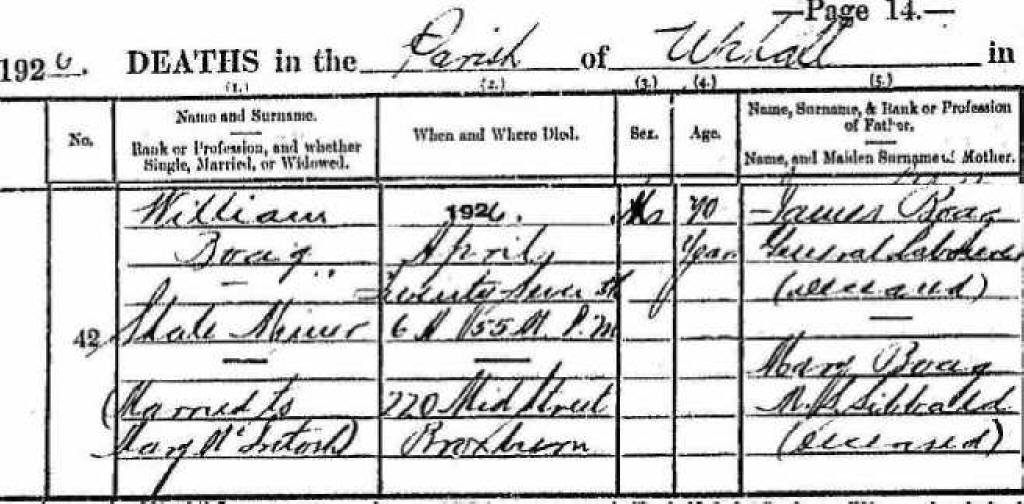 —Page 14.—
1926. DEATHS in the Parish of Uphall in
(1.) (2.) (3.) (4.) (5.)
No.
Name and Surname.
Rank or Profession, and whether
Single, Married, or Widowed.
When and Where Died.
Sex.
Age.
Name, Surname, & Rank or Profession
of Father.
Name, and Maiden Surname of Mother.
42
William
Boag
Shale Miner
(Married to
Mary McIntosh)
1926.
April,
Twenty Seventh
6 H 55 M. P.M.
220 Mid Street
Broxburn
M
70
Years
James Boag
General Labourer
(deceased)
Mary Boag
M.S. Sibbald
(deceased)